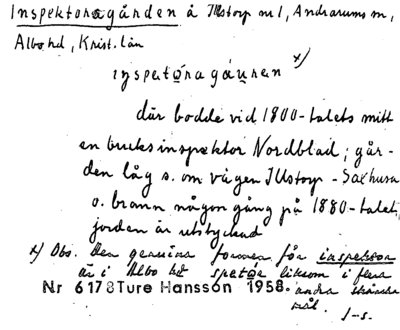 Inspektoragården å Illstorp nr 1, Andrarums sn,
Albo hd, Krist. län
x)
inspetǫragáu̯ren
där bodde vid 1800-talets mitt
en bruksinspektor Nordblad; går-
den låg s. om vägen Illstorp -
o. brann någon gång på 1880-talet,
jorden är utstyckad
x) Obs. den genuina formen för inspektor
är i Albo hd spetǫr liksom i flera
Nr 6178 Ture Hansson 1958. andra skånska
mål. I-s.